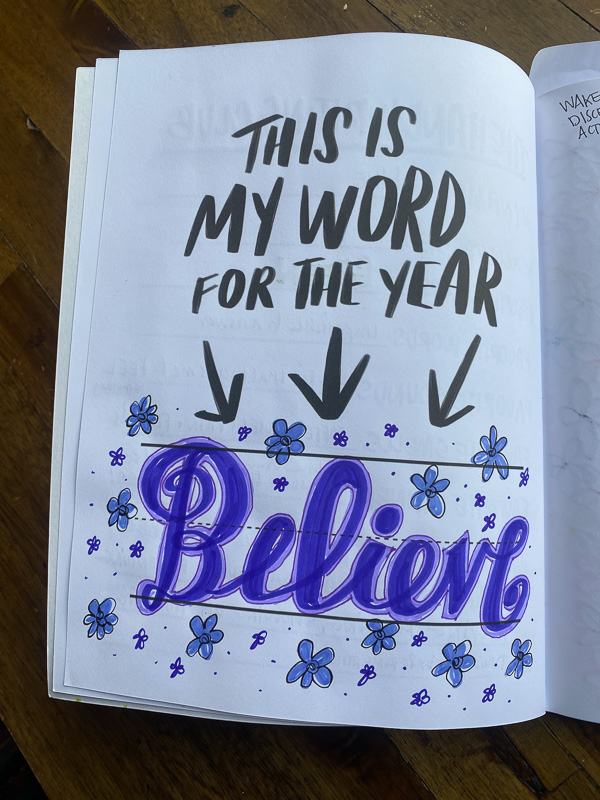 THIS IS
MY WORD
FOR THE YEAR
Believe
WAKE
DISC
ACT